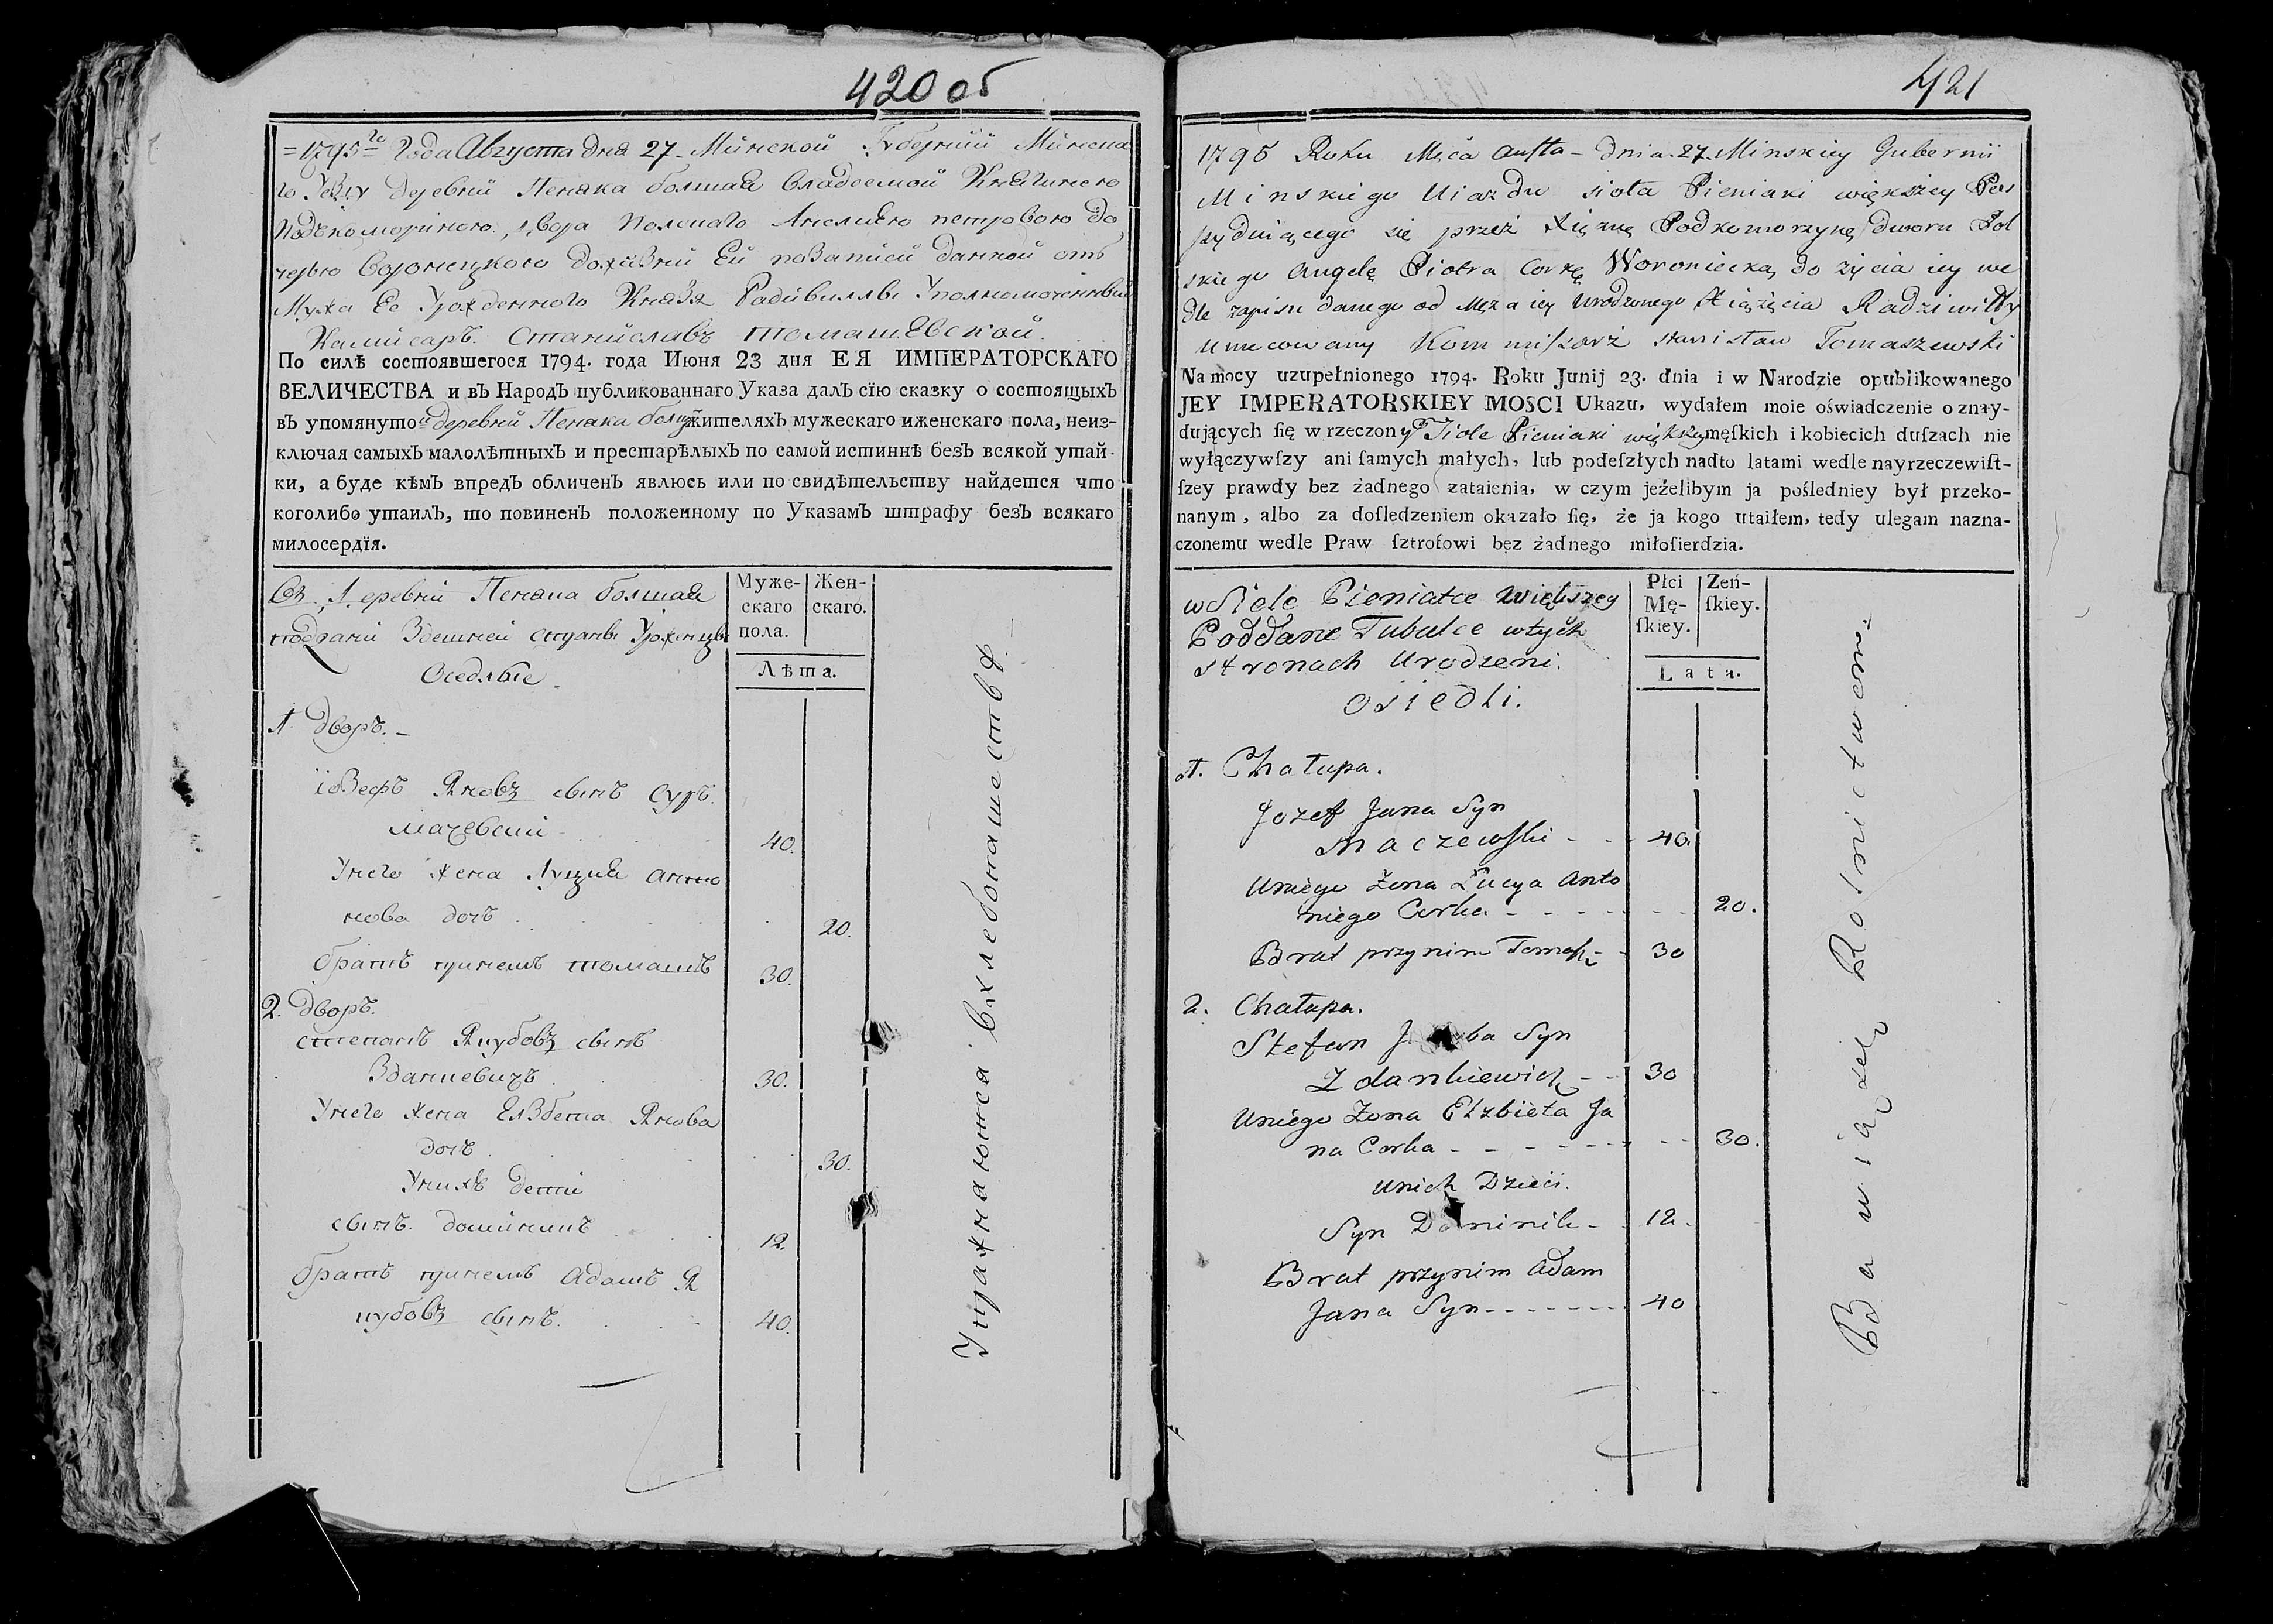 420 об
=1795го Года Августа дня 27 Минской Губернии Минска
го уезду Деревни Пеняка большая владеемой Княгинею
Подъкомориною двора Полскаго Анелиею петровою до
черью Воронецкою дожизни Ей позаписи данной отъ
Мужа Ее Урожденного Князя Радивиллы Уполномоченный
Камисаръ Станиславъ томашевской.
По силѣ состоявшегося 1794. года Іюня 23 дня ЕЯ ИМПЕРАТОРСКАГО
ВЕЛИЧЕСТВА и въ Народъ публикованнаго Указа далъ сїю сказку о состоящыхъ
въ упомянутой деревни Пеняка болш жителяхъ мужескаго иженскаго пола, неиз-
ключая самыхъ малолѣтныхъ и престарѣлыхъ по самой истиннѣ безъ всякой утай-
ки, а буде кѣмъ впредъ обличенъ явлюсь или по свидѣтельству найдется что
коголибо утаилъ, то повиненъ положенному по Указамъ штрафу безъ всякаго
милосердїя.
Въ Деревни Пеняка большая
подданни Здешней Уроженцы
Оседлые
Муже-
скаго
пола.
Жен-
скаго.
Лѣта.
1. дворъ.
іозефъ Яновъ сынъ
мачевский 40.
Унего жена Луция анто
нова дочъ 20.
братъ принемъ томашъ 30.
2. дворъ.
степанъ Якубовъ сынъ
Зданкевичъ 30.
Унего жена Елзбета Янова
дочъ 30.
Унихъ дети
сынъ доминикъ 12.
братъ принемъ Адамъ Я
кубовъ сынъ. 40.
Упражняются вхлебопашествѣ
421
1795 Roku Mca Austa - dnia 27 Minskiey Gubernii
Minskiego Uiazdu siola Pieniaki większey Pos
sydniącego się przez Xiężnę Podkomorzynę dworu Pol
skiego Angelę Piotra Corkę Woroniecką do życia iey we
dle zapisu danego od Męza iey Urodzonego Xiążęcia Radziwiłły
Umocowany Kommissarz Stanisław Tomaszewski
Na mocy uzupełnionego 1794. Roku Junij 23. dnia i w Narodzie opublikowanego
JEY IMPERATORSKIEY MOSCI Ukazu, wydałem moie oświadczenie o znay-
dujących ſię w rzeczony Siole Pieniaki większey męſkich i kobiecich duſzach nie
wyłączywſzy ani ſamych małych, lub podeſzłych nadto latami wedle nayrzeczewiſt-
ſzey prawdy bez żadnego zataienia, w czym jeżelibym ja pośledniey był przeko-
nanym, albo za doſledzeniem okazało ſię, że ja kogo utaiłem, tedy ulegam nazna-
czonemu wedle Praw ſztrofowi bez żadnego miłoſierdzia.
w Siele Pieniatce Większey
Poddane Tubalce wtych
stronach Urodzeni.
osiedli.
Płci
Mę-
ſkiey.
Żeń-
ſkiey.
Lata.
1. Chałupa.
Jozef Jana Syn
Maczewski - 40.
Uniego Żona Łucya Anto
niego Corka - 20.
Brat przynim Tomasz - 30
2. Chałupa.
Stefan Syn
Zdankiewicz - 30
Uniego Żona Elzbieta Ja
na Corka - 30.
Unich Dzieci.
Syn Dominik - 12.
Brat przynim Adam
Jana Syn - 40
Bawią się Rolnictwem